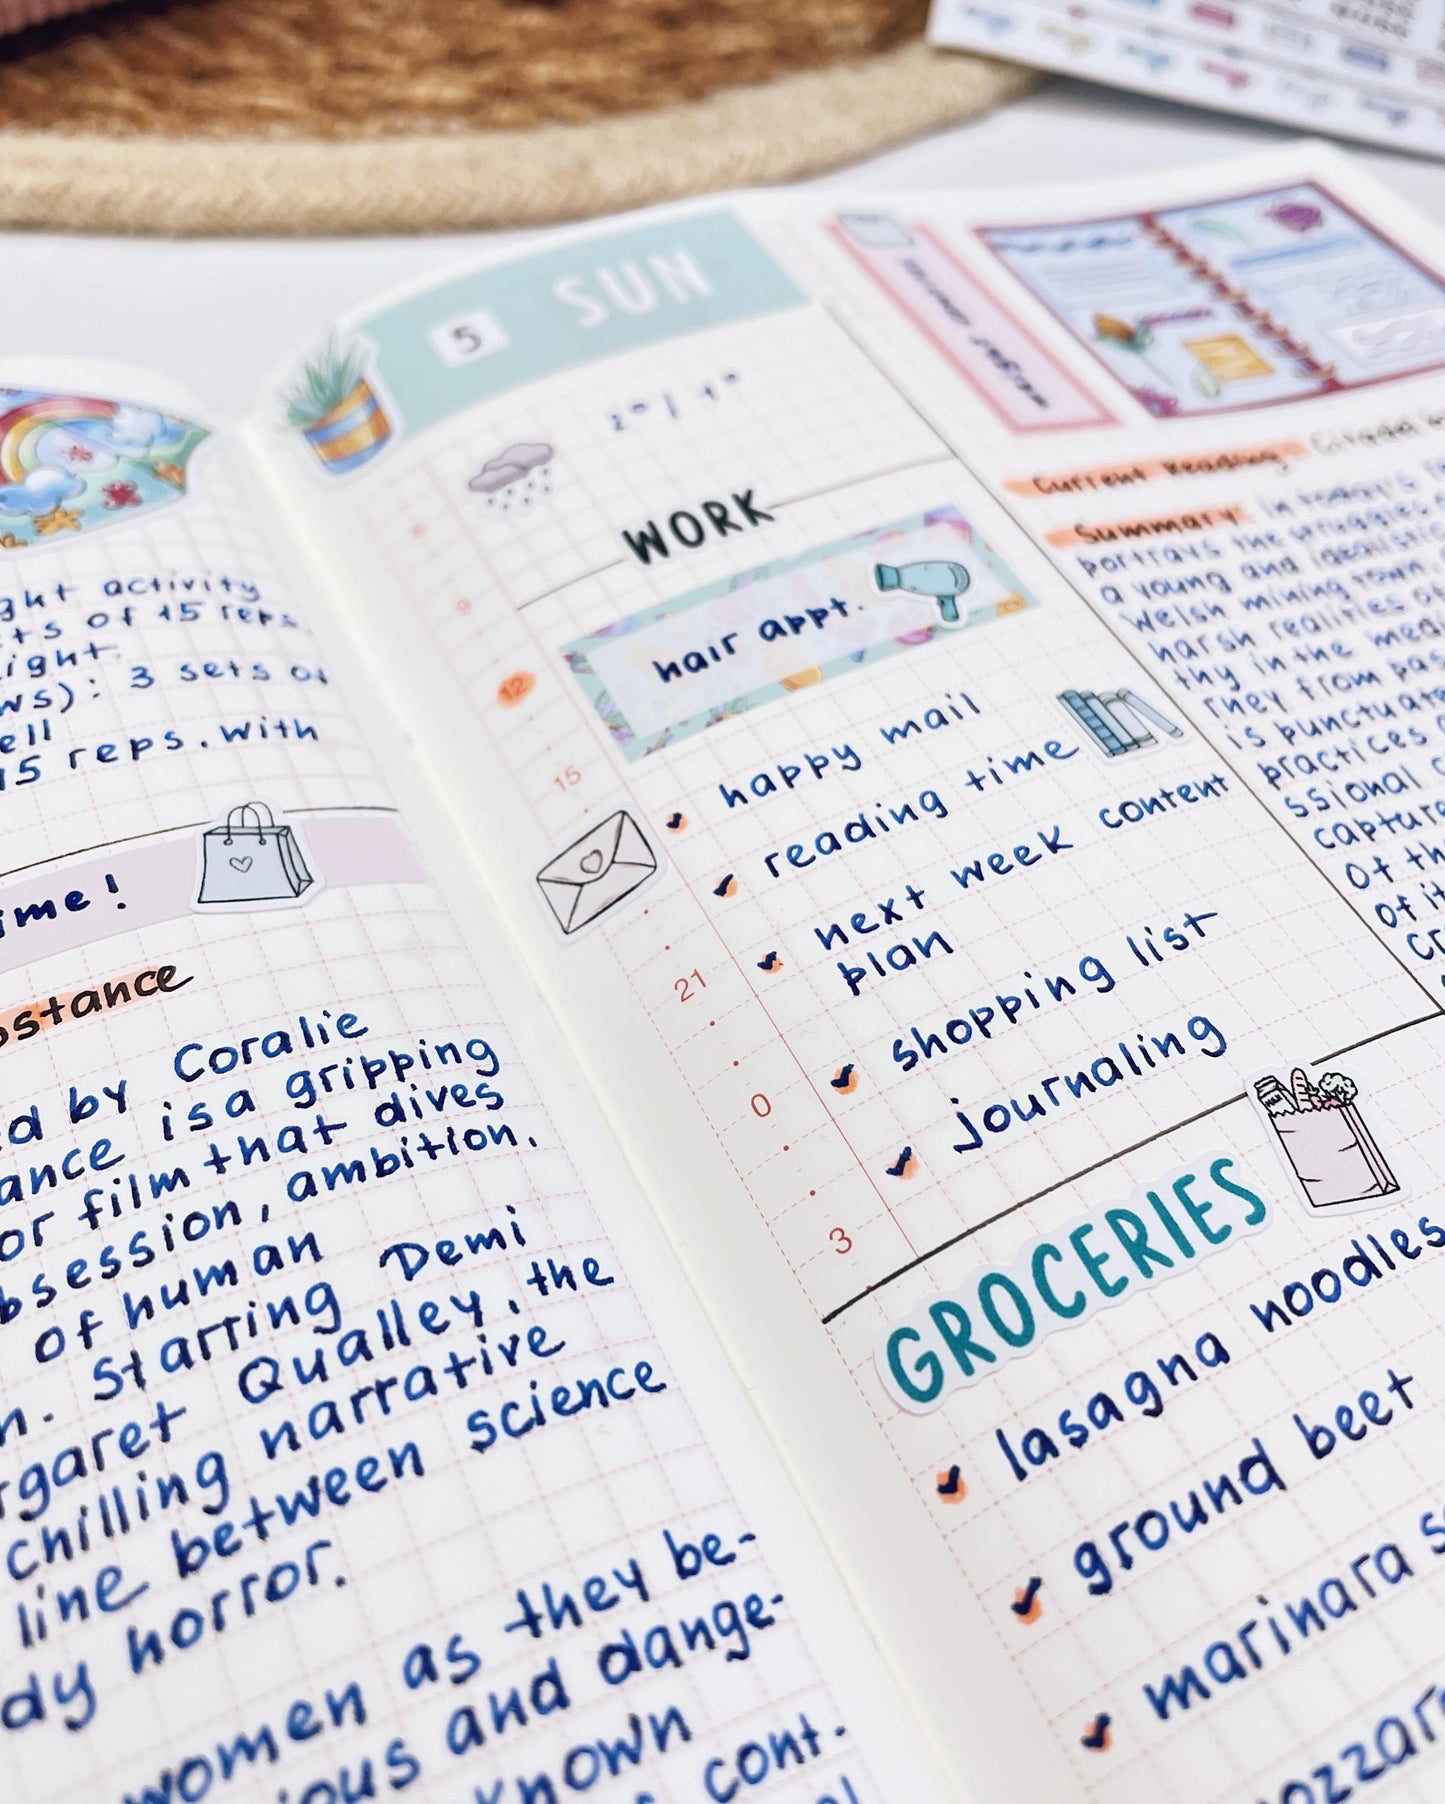 ght activity
ts of 15 reps.
ight.
ws): 3 sets of
ell
15 reps. with
ime!
bstance
ed by Coralie
ance is a gripping
or film that dives
bsession, ambition,
of human
n. Starring Demi
rgaret Qualley, the
chilling narrative
line between science
dy horror.
women as they be-
ious and dange-
known
cont.
5 SUN
2° | 1°
WORK
hair appt.
happy mail
reading time
next week content
plan
shopping list
journaling
12
15
21
0
3
GROCERIES
lasagna noodles
ground beet
marinara s
ozzar
Current Reading: Citadel
Summary: In today's r
portrays the struggles
a young and idealistic
Welsh mining town.
harsh realities of
thy in the medi
rney from pas
is punctuate
practices
ssional c
capture
of th
of it
cr